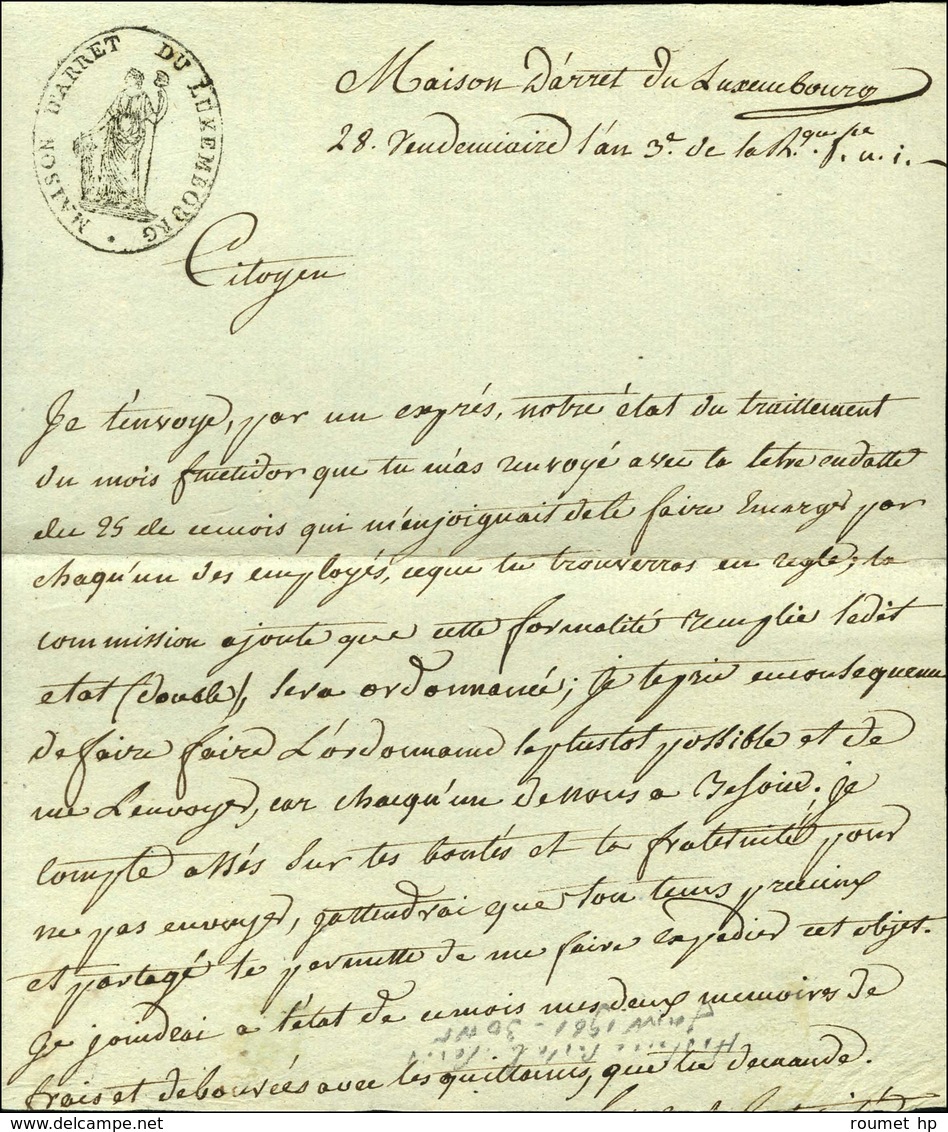 MAISON D'ARRET DU LUXEMBOURG
Maison D'árret du Luxembourg
28. Vendemiaire l'an 3.e de la R.que f.se u. i.
Citoyen
Je t'envoye, par un exprés, notre état du traittement
du mois fructidor que tu m'as renvoyé avec ta letre endatte
du 25 de cemois qui m'enjoignait dele faire Emarger par
chaqu'un des employés, ceque tu trouverras en regle; ta
commission ajoute que cette formalité remplie ledit
etat (double), sera ordonnancé; je teprie enconsequence
de faire faire L'ordonnance leplustot possible et de
me L'envoyer, car chacqu'un denous a Besoin. je
compte assés sur tes bontés et ta fraternité, pour
ne pas envoyer, j'attendrai que ton tems precieux
et partagé te permette de me faire expedier cet objet.
Je joindrai a l'état de cemois mes deux memoires de
frais et debourrées avec les quittances, que tu demande.
© roumet hp delcampe.net